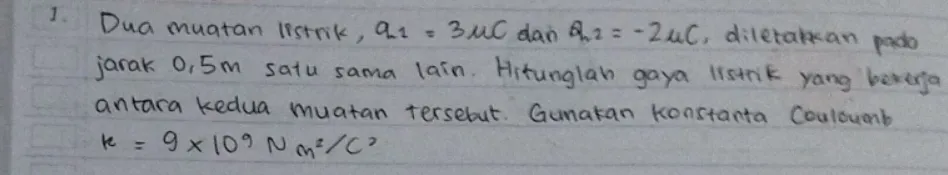 1. Dua muatan listrik, q1 = 3 μC dan q2 = -2 μC, diletakkan pada
jarak 0,5 m satu sama lain. Hitunglah gaya listrik yang bekerja
antara kedua muatan tersebut. Gunakan konstanta Couloumb
k = 9 × 10⁹ N m²/C²